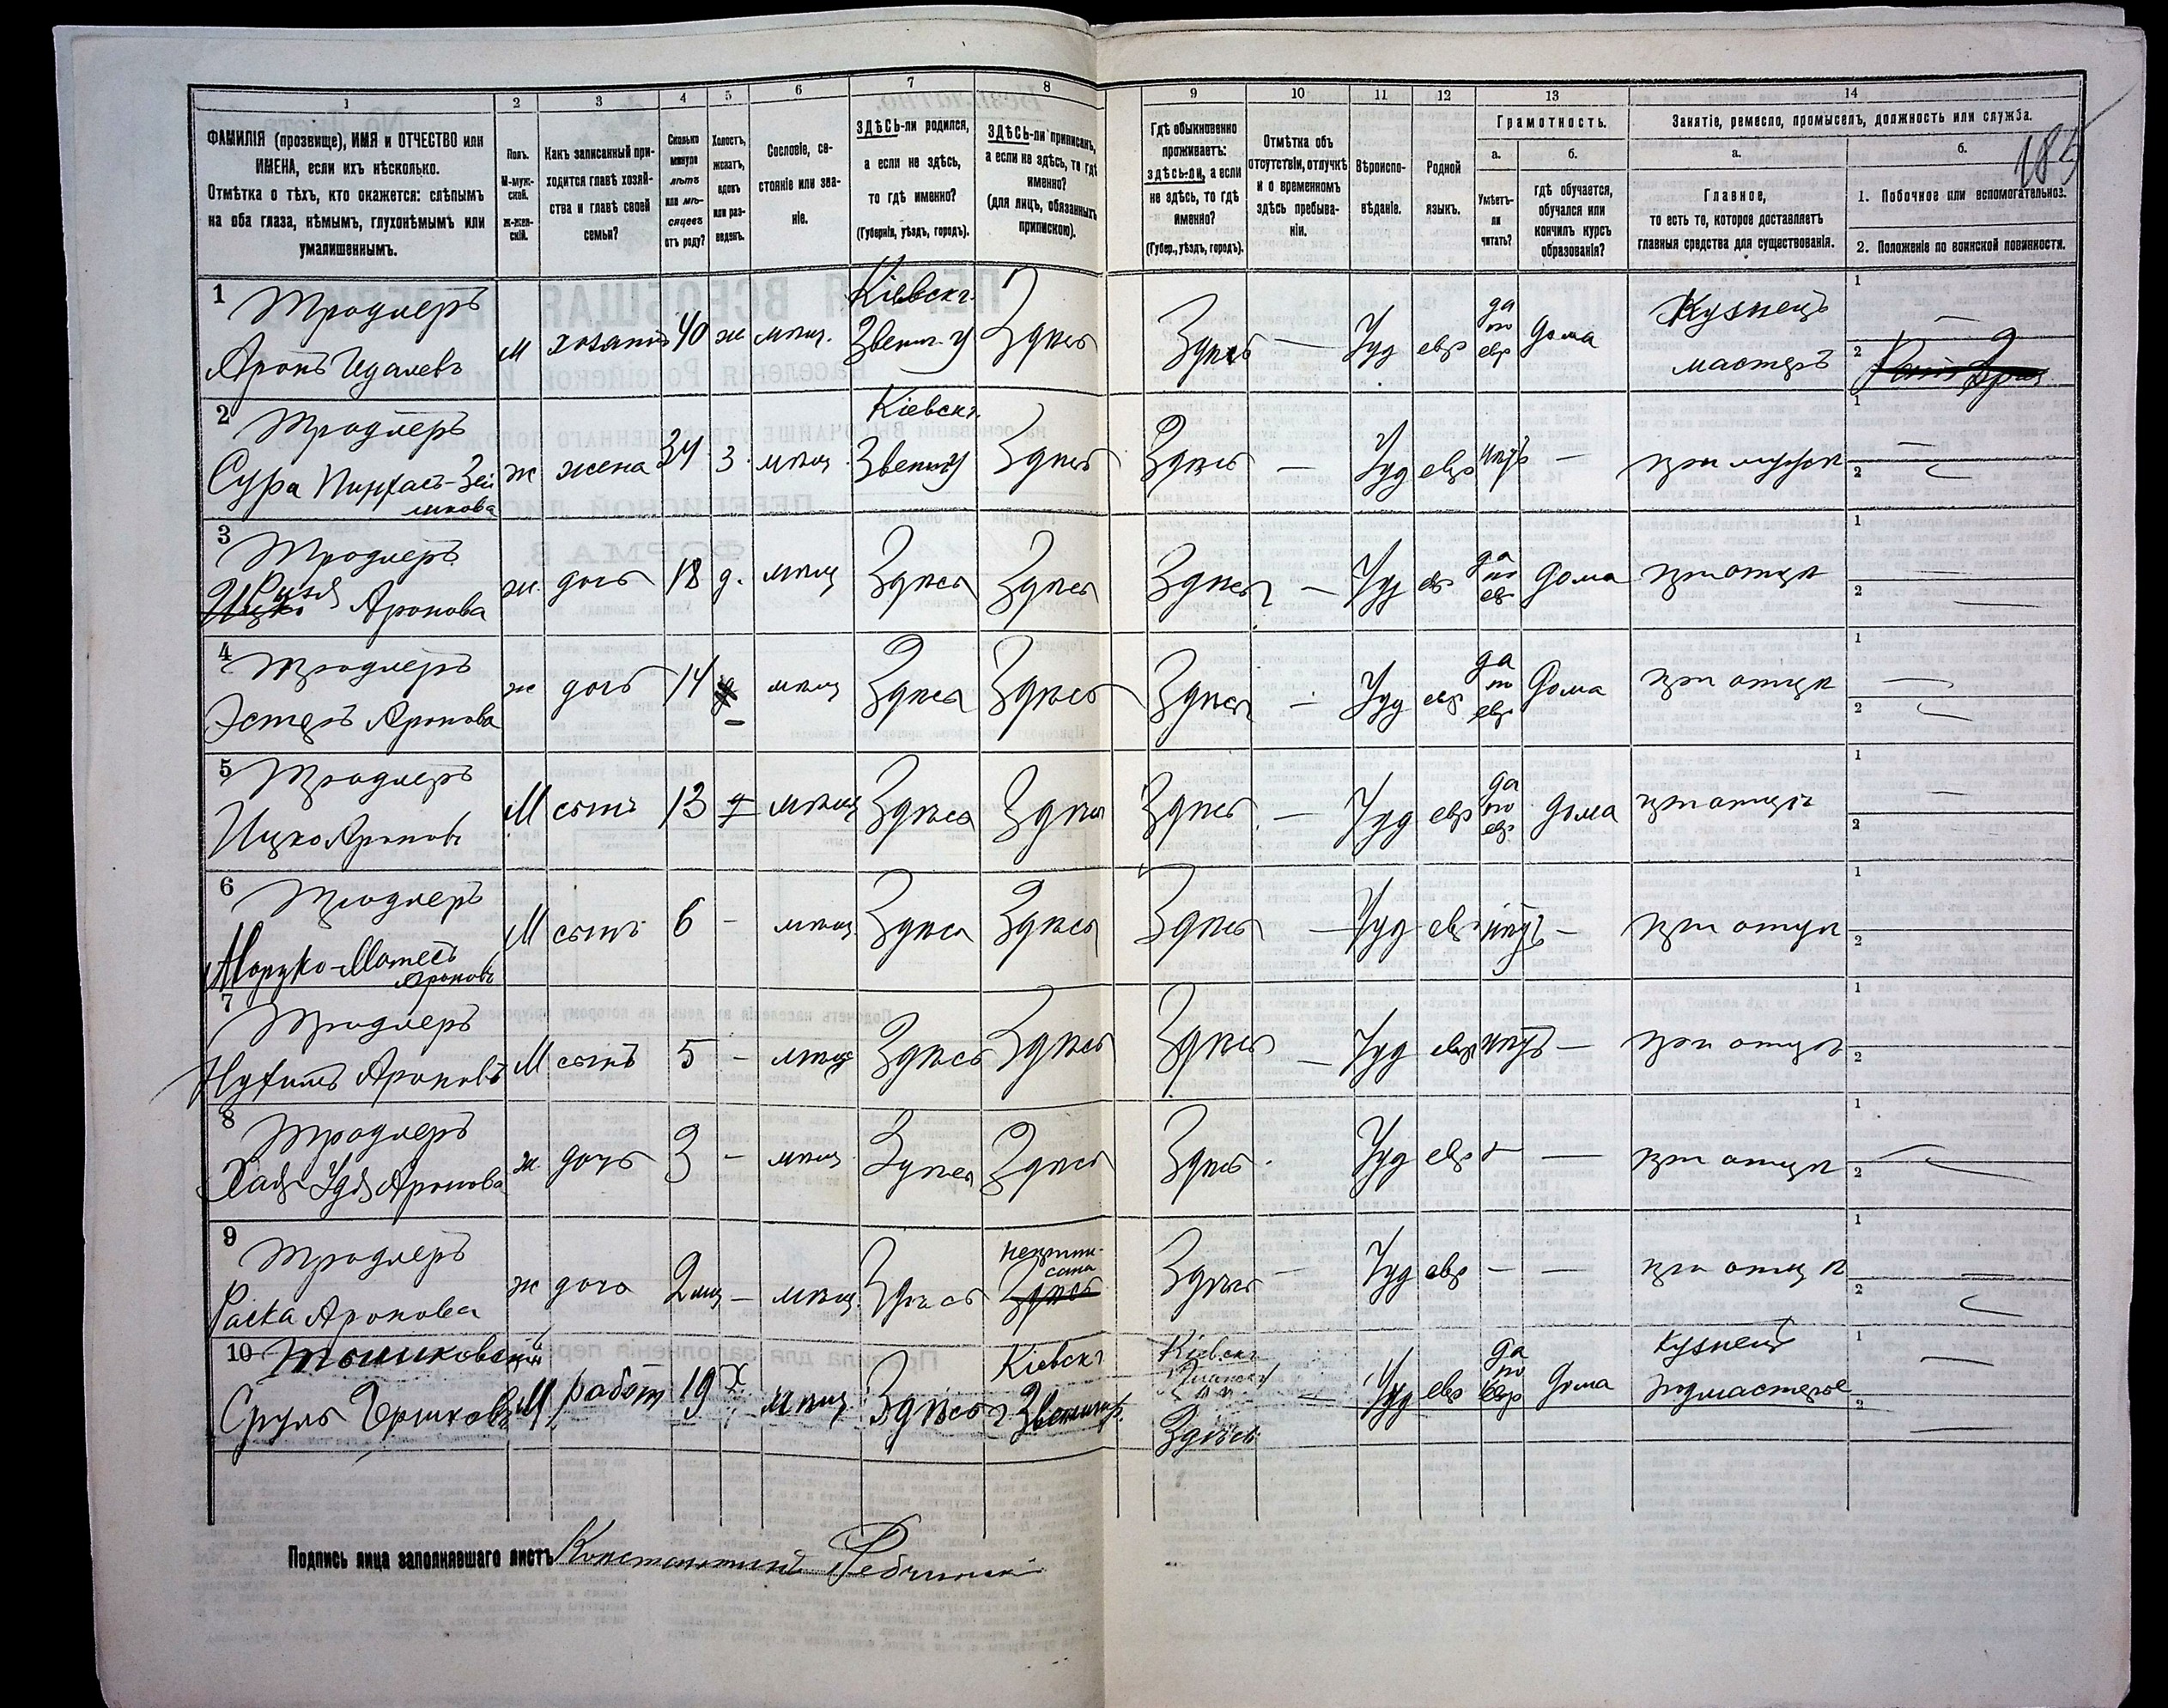 1 2 3 4 5 6 7 8 9 10 11 12 13 14
ФАМИЛІЯ (прозвище), ИМЯ и ОТЧЕСТВО или
ИМЕНА, если ихъ нѣсколько.
Отмѣтка о тѣхъ, кто окажется: слѣпымъ
на оба глаза, нѣмымъ, глухонѣмымъ или
умалишеннымъ.
Полъ.
М-муж-
ской.
Ж-жен-
скій.
Какъ записанный при-
ходится главѣ хозяй-
ства и главѣ своей
семьи?
Сколько
минуло
лѣтъ
или мѣ-
сяцевъ
отъ роду?
Холостъ,
женатъ,
вдовъ
или раз-
веденъ.
Сословіе, со-
стояніе или зва-
ніе.
ЗДѢСЬ-ли родился,
а если не здѣсь,
то гдѣ именно?
(Губернія, уѣздъ, городъ).
ЗДѢСЬ-ли приписанъ,
а если не здѣсь, то гдѣ
именно?
(для лицъ, обязанныхъ
припискою).
Гдѣ обыкновенно
проживаетъ:
здѣсь-ли, а если
не здѣсь, то гдѣ
именно?
(Губер., уѣздъ, городъ).
Отмѣтка объ
отсутствіи, отлучкѣ
и о временномъ
здѣсь пребыва-
ніи.
Вѣроиспо-
вѣданіе.
Родной
языкъ.
Грамотность.
а.
Умѣетъ-
ли
читать?
б.
гдѣ обучается,
обучался или
кончилъ курсъ
образованія?
Занятіе, ремесло, промыселъ, должность или служба.
а.
Главное,
то есть то, которое доставляетъ
главныя средства для существованія.
б.
1. Побочное или вспомогательное.
2. Положеніе по воинской повинности.
185
1 Тродлеръ Кіевск г. да Кузнецъ 1 —
Аронъ М хозяинъ 40 ж мѣщ. Звениг. у Здѣсь Здѣсь — Іуд евр по евр дома мастеръ 2
2 Тродлеръ Кіевск г. 1 —
Сура Пинхасъ- ж жена 34 з. мѣщ. Звениг у Здѣсь Здѣсь — Іуд евр нѣтъ — при мужѣ 2 —
3 Тродлеръ да 1 —
Аронова ж. дочь 18 д. мѣщ Здѣсь Здѣсь Здѣсь — Іуд евр по евр дома при отцѣ 2 —
4 Тродлеръ да 1 —
Эстеръ Аронова ж дочь 14 — мѣщ Здѣсь Здѣсь Здѣсь — Іуд евр по евр дома при отцѣ 2 —
5 Тродлеръ да 1 —
Ицко Ароновъ М сынъ 13 мѣщ Здѣсь Здѣсь Здѣсь — Іуд евр по евр дома при отцѣ 2
6 Тродлеръ 1
Ароновъ М сынъ 6 — мѣщ Здѣсь Здѣсь Здѣсь — Іуд евр нѣтъ — при отцѣ 2
7 Тродлеръ 1
Нухимъ Ароновъ М сынъ 5 — мѣщ Здѣсь Здѣсь Здѣсь — Іуд евр нѣтъ — при отцѣ 2
8 Тродлеръ 1
Аронова ж. дочь 3 — мѣщ Здѣсь Здѣсь Здѣсь Іуд евр — — при отцѣ 2 —
9 Тродлеръ неприписана 1 —
Аронова ж дочь 2 мѣщ Здѣсь Здѣсь — Іуд евр — — при отцѣ 2
10 Кіевск г Кіевск г да Кузнецъ 1 —
Сруль Гершковъ М работ 19 х мѣщ. Здѣсь Звениг у. Здѣсь Іуд евр по евр дома подмастерье 2 —
Подпись лица заполнявшаго листъ Константинъ